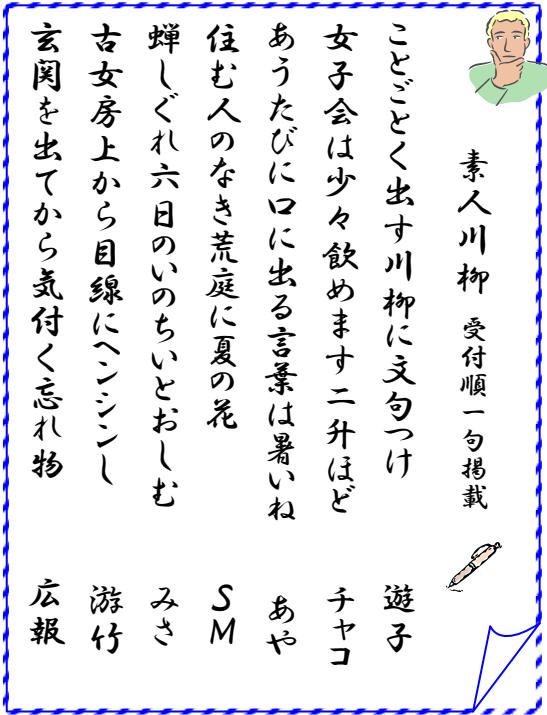 素人川柳　受付順一句掲載
ことごとく出す川柳に文句つけ　遊子
女子会は少々飲めます二升ほど　チャコ
あうたびに口に出る言葉は暑いね　あや
住む人のなき荒庭に夏の花　ＳＭ
蝉しぐれ六日のいのちいとおしむ　みさ
古女房上から目線にヘンシンし　游竹
玄関を出てから気付く忘れ物　広報